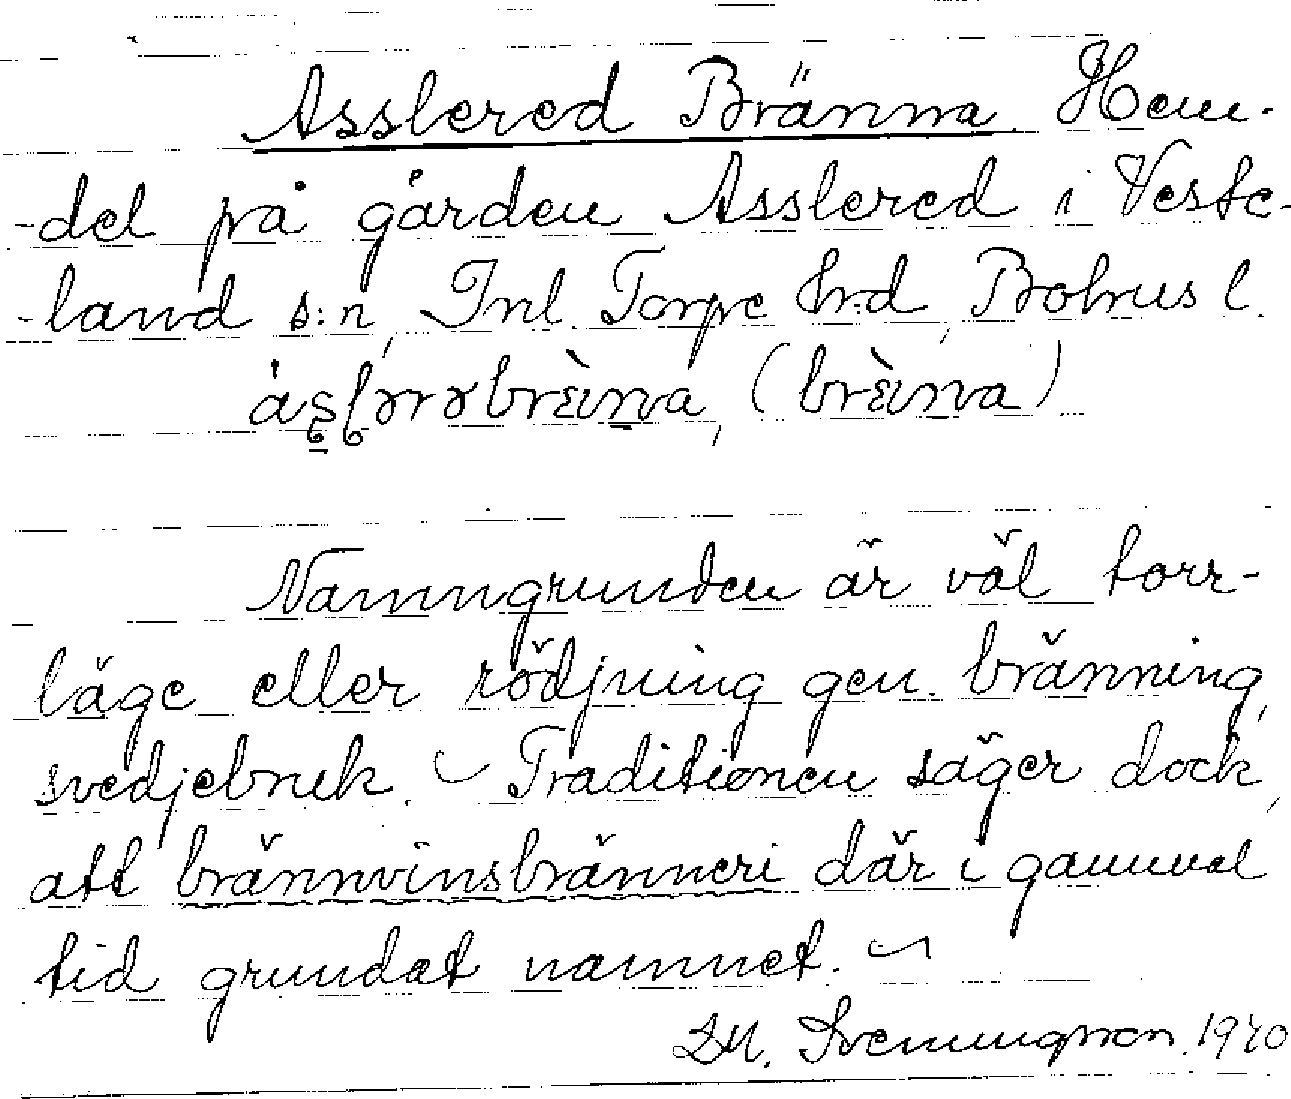 Asslered Bränna. Hem-
-del på gården Asslered i Veste-
-land s:n, Inl. Torpe hrd, Bohus l.
(brɛ̀ına)
Namngrunden är väl torr-
läge eller rödjning gen. bränning,
svedjebruk. ~ Traditionen säger dock,
att brännvinsbränneri där i gammal
tid grundat namnet. ~
Svenungsson. 1940